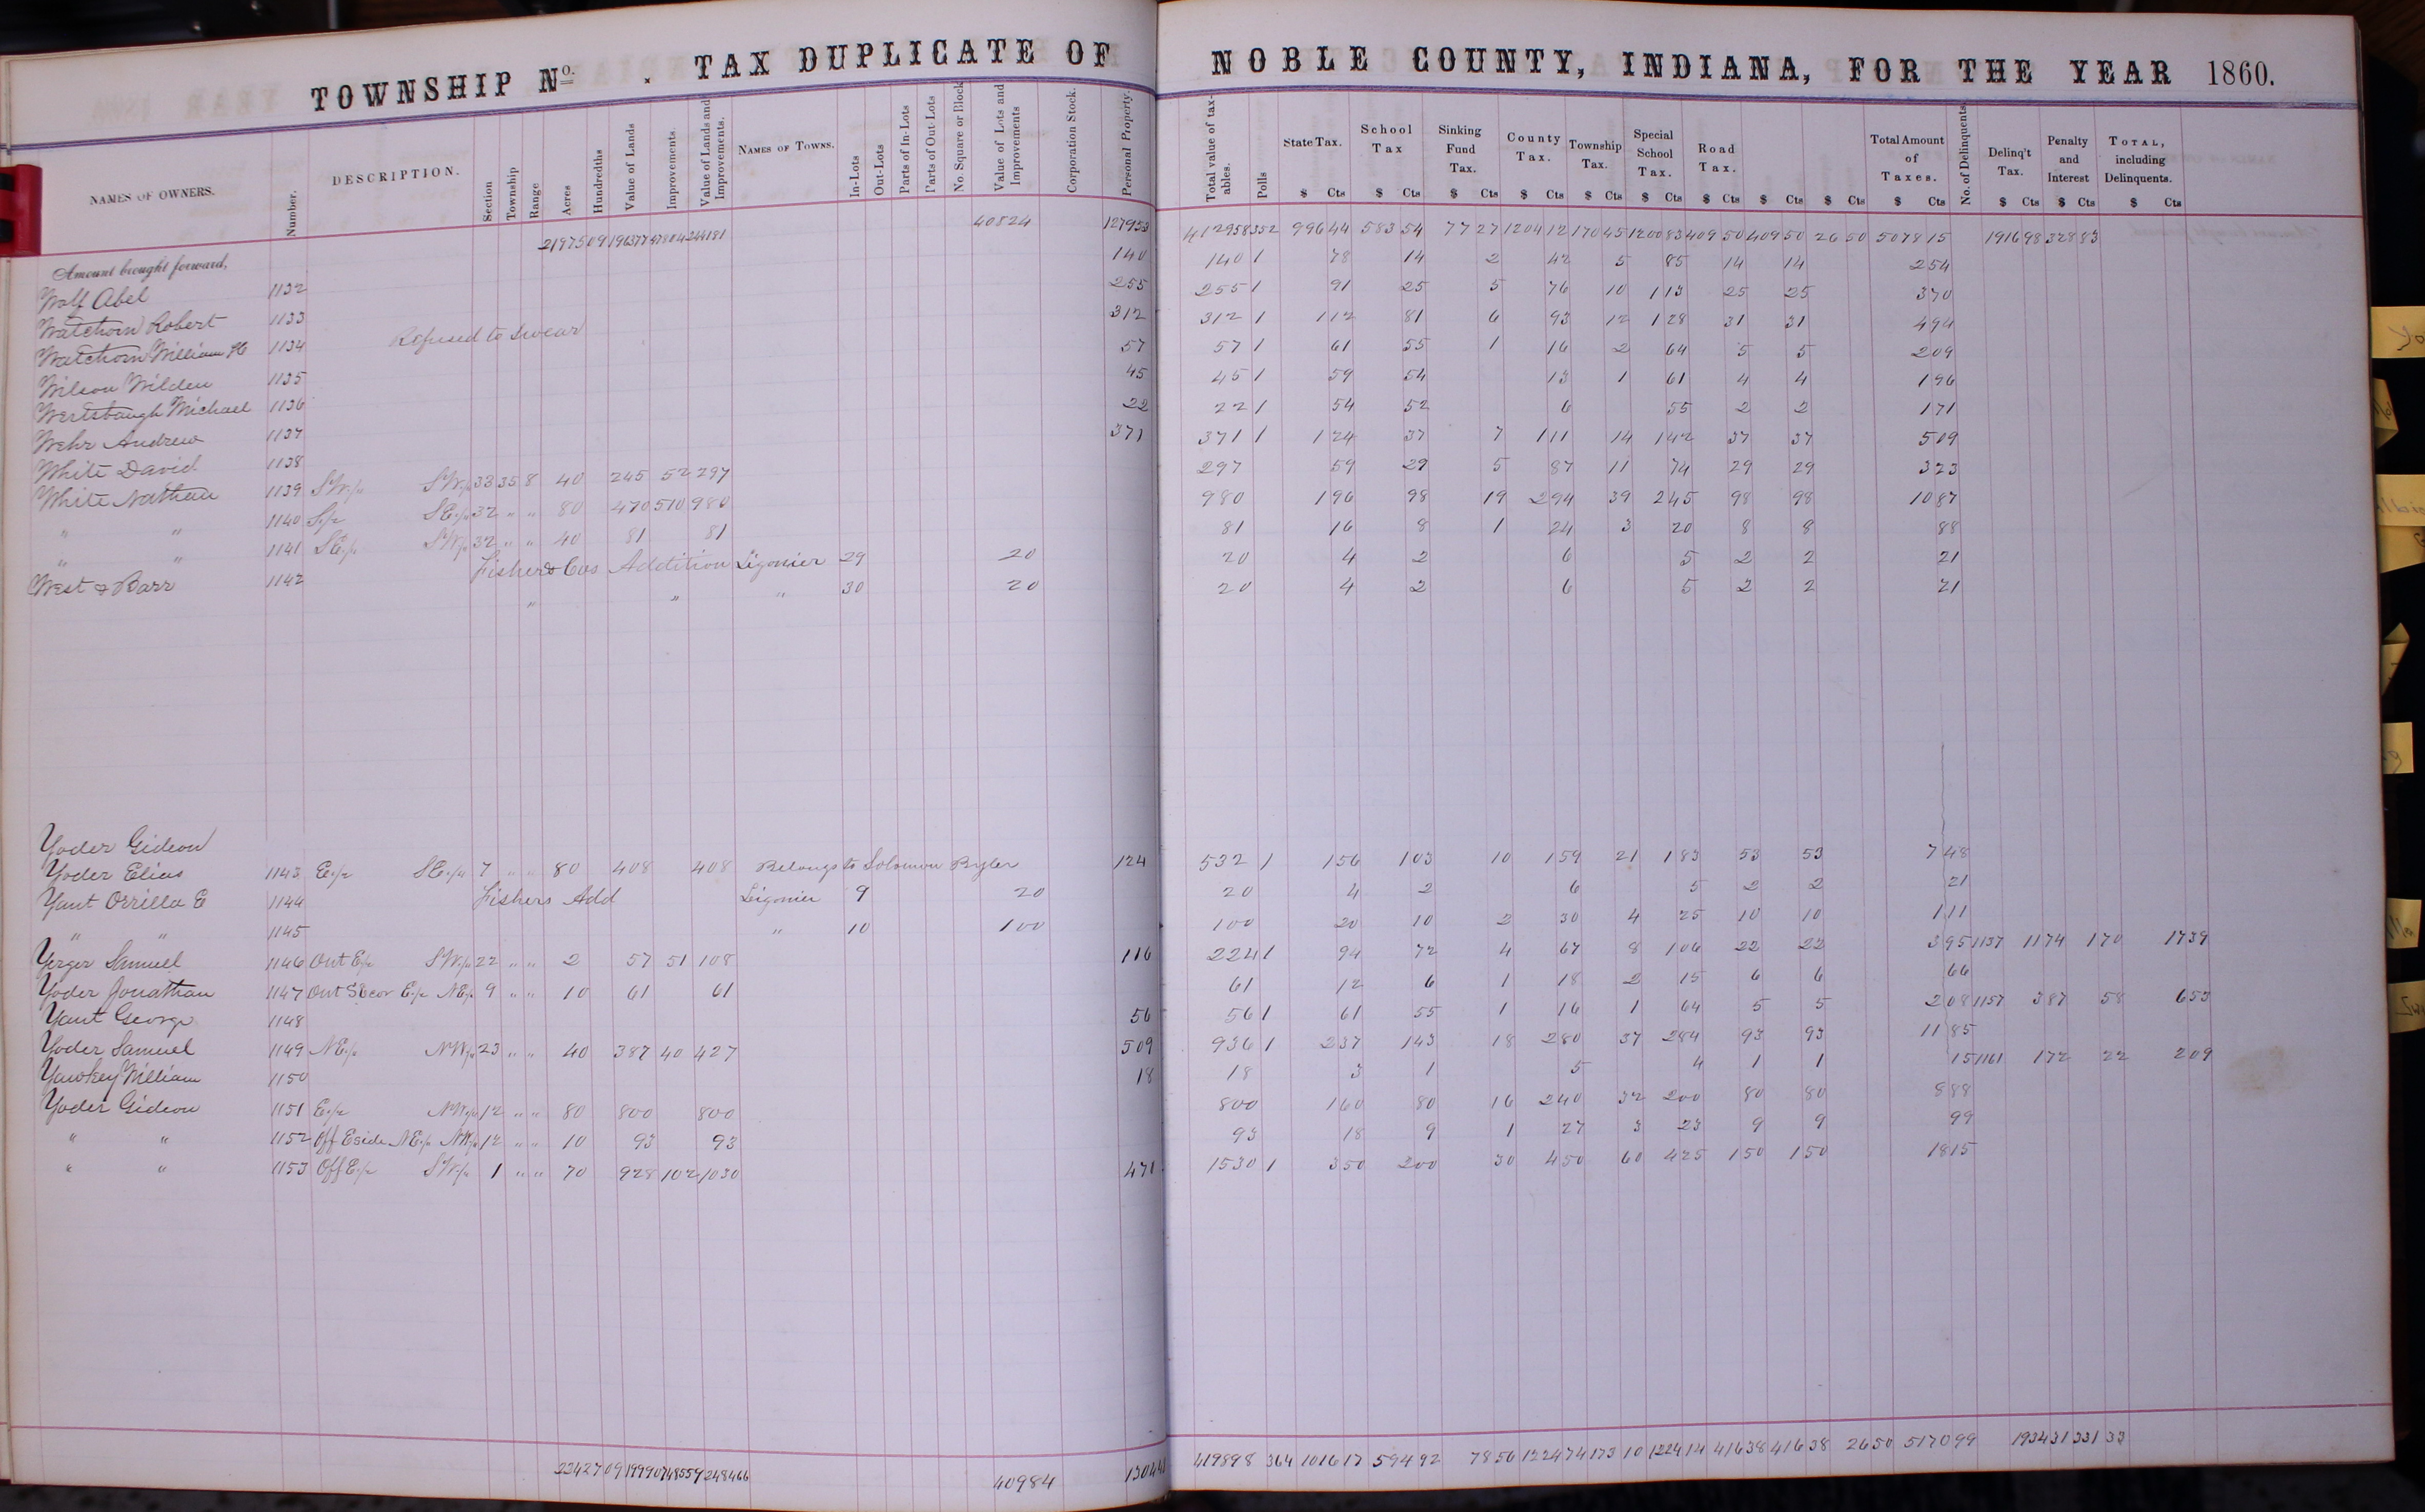 TOWNSHIP No. . TAX DUPLICATE OF NOBLE COUNTY, INDIANA, FOR THE YEAR 1860.
NAMES OF OWNERS. Number. DESCRIPTION. Section Township Range Acres Hundredths Value of Lands Improvements. Value of Lands and Improvements. NAMES OF TOWNS. In-Lots Out-Lots Parts of In-Lots Parts of Out-Lots No. Square or Block Value of Lots and Improvements Corporation Stock. Personal Property. Total value of taxables. Polls State Tax. School Tax Sinking Fund Tax. County Tax. Township Tax. Special School Tax. Road Tax. Total Amount of Taxes. No. of Delinquents. Delinq't Tax. Penalty and Interest TOTAL, including Delinquents.
$ Cts $ Cts $ Cts $ Cts $ Cts $ Cts $ Cts $ Cts $ Cts $ Cts $ Cts $ Cts $ Cts
Amount brought forward, 21975 09 196377 47804 244181 40824 127953 412958 352 996 44 583 54 77 27 1204 12 170 45 1200 83 409 50 409 50 26 50 5078 15 1916 98 328 83
Wolf Abel 1132 140 140 1 78 14 2 42 5 85 14 14 2 54
Watchorn Robert 1133 255 255 1 91 25 5 76 10 1 13 25 25 3 70
Watchorn William H 1134 Refused to Swear 312 312 1 1 12 81 6 93 12 1 28 31 31 4 94
Wilson Wilden 1135 57 57 1 61 55 1 16 2 64 5 5 2 09
Wertsbaugh Michael 1136 45 45 1 59 54 13 1 61 4 4 1 96
Wehr Andrew 1137 22 22 1 54 52 6 55 2 2 1 71
White David 1138 371 371 1 1 24 37 7 1 11 14 1 42 37 37 5 09
White Nathan 1139 SW¼ SW¼ 33 35 8 40 245 52 297 297 59 29 5 87 11 74 29 29 3 23
" " 1140 S½ SE¼ 32 " " 80 470 510 980 980 1 96 98 19 2 94 39 2 45 98 98 10 87
" " 1141 SE¼ SW¼ 32 " " 40 81 81 81 16 8 1 24 3 20 8 8 88
West & Barr 1142 Fisher & Cos Addition Ligonier 29 20 20 4 2 6 5 2 2 21
" " " 30 20 20 4 2 6 5 2 2 21
Yoder Gideon
Yoder Elias 1143 E½ SE¼ 7 " " 80 408 408 Belongs to Solomon Byler 124 532 1 1 56 1 03 10 1 59 21 1 83 53 53 7 48
Yant Orrilla E 1144 Fishers Add Ligonier 9 20 20 4 2 6 5 2 2 21
" " 1145 " 10 100 100 20 10 2 30 4 25 10 10 1 11
Yerger Samuel 1146 Out E½ SW¼ 22 " " 2 57 51 108 116 224 1 94 72 4 67 8 1 06 22 22 3 95 1137 11 74 1 70 17 39
Yoder Jonathan 1147 Out SEcor E½ NE¼ 9 " " 10 61 61 61 12 6 1 18 2 15 6 6 66
Yant George 1148 56 56 1 61 55 1 16 1 64 5 5 2 08 1157 3 87 58 6 53
Yoder Samuel 1149 NE¼ NW¼ 23 " " 40 387 40 427 509 936 1 2 37 1 43 18 2 80 37 2 84 93 93 11 85
Yawkey William 1150 18 18 3 1 5 4 1 1 15 1161 1 72 22 2 09
Yoder Gideon 1151 E½ NW¼ 12 " " 80 800 800 800 1 60 80 16 2 40 32 2 00 80 80 8 88
" " 1152 Off Eside NE¼ NW¼ 12 " " 10 93 93 93 18 9 1 27 3 23 9 9 99
" " 1153 Off E½ SW¼ 1 " " 70 928 102 1030 471 1530 1 3 50 2 00 30 4 50 60 4 25 1 50 1 50 18 15
23427 09 199907 48559 248466 40984 419898 364 1016 17 594 92 78 56 1224 74 173 10 1224 14 416 38 416 38 26 50 5170 99 1934 31 331 33